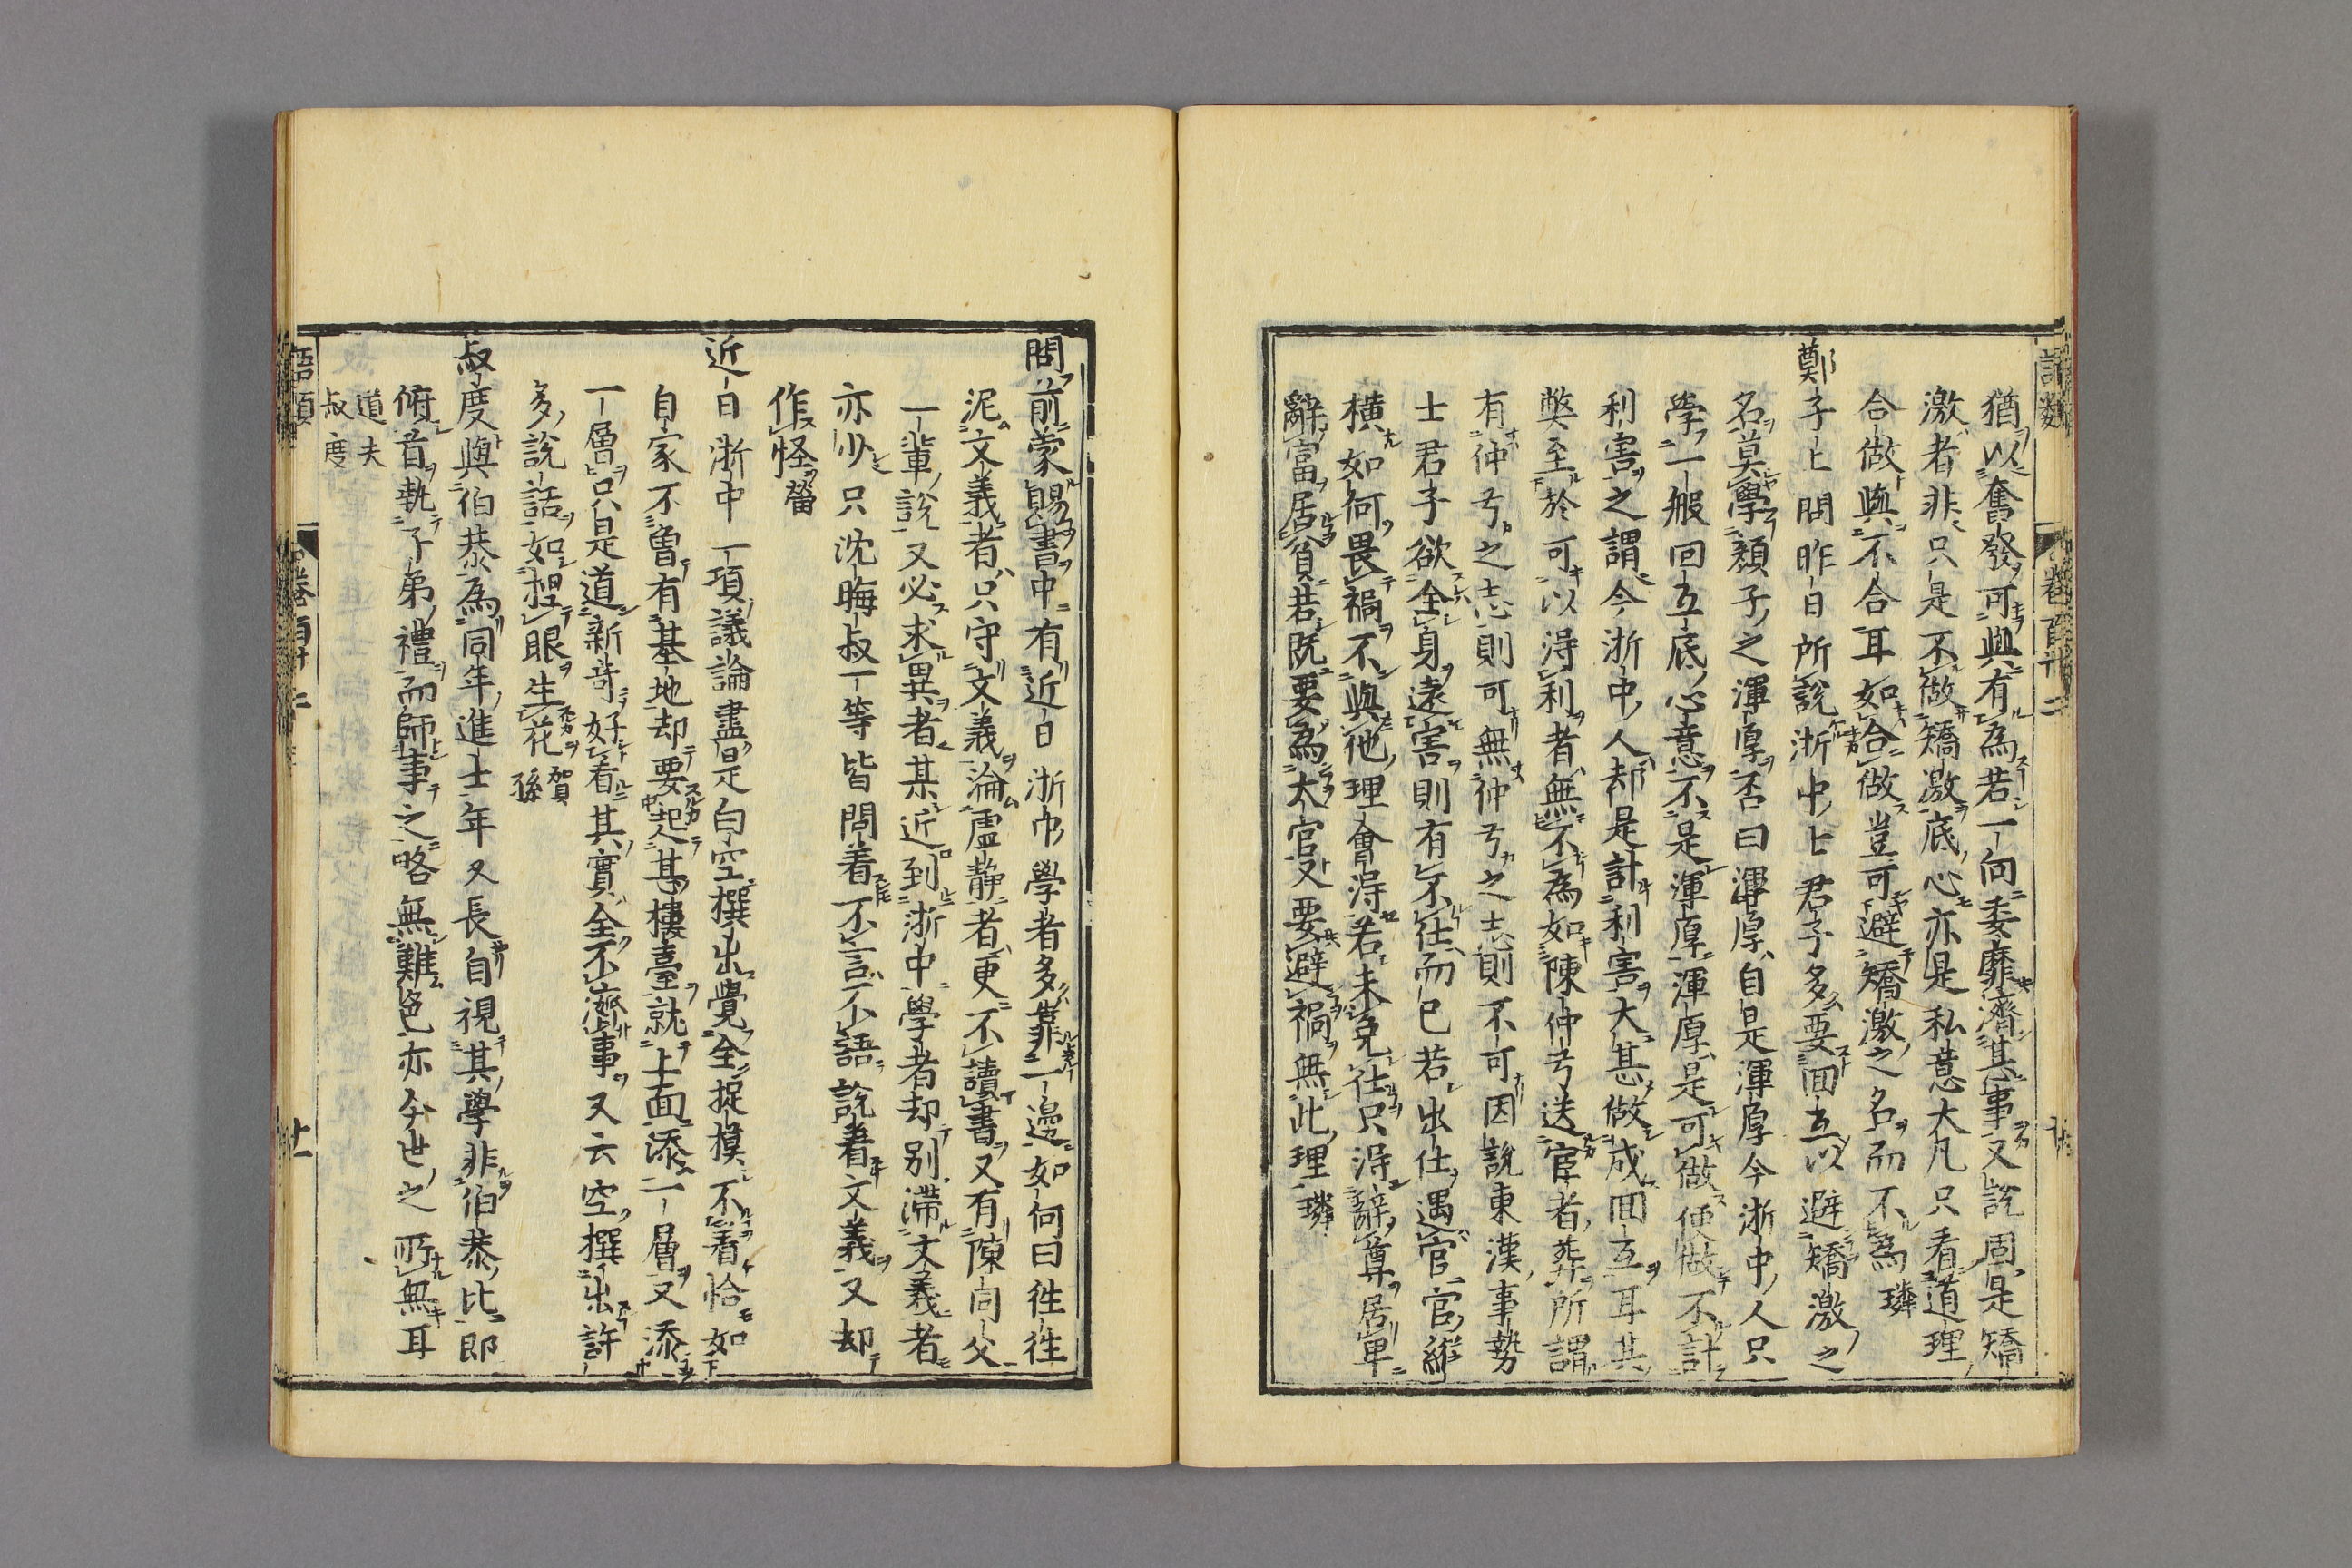 猶以奮發可與有為若一向委靡濟甚事又說固是矯
激者非只是不做矯激底心亦是私意大凡只看道理
合做與不合耳如合做豈可避矯激之名而不為 璘
鄭子上問昨日所說浙中士君子多要回互以避矯激之
名莫學顏子之渾厚否曰渾厚自是渾厚今浙中人只
學一般回互底心意不是渾厚渾厚是可做便做不計
利害之謂今浙中人却是計利害太甚做成回互耳其
弊至於可以得利者無不為如陳仲弓送宦者葬所謂
有仲弓之志則可無仲弓之志則不可因說東漢事勢
士君子欲全身遠害則有不仕而已若出仕遇宦官縱
橫如何畏禍不與他理會得若未免仕只得辭尊居卑
辭富居貧若既要為大官又要避禍無此理 璘
問前蒙賜書中有近日浙中學者多靠一邊如何曰徃徃
泥文義者只守文義淪虛静者更不讀書又有陳同父
一輩說又必求異者某近到浙中學者却别滯文義者
亦少只沈晦叔一等皆問着不言不語說着文義又却
作怪 㽦
近日浙中一項議論盡是白空撰出覺全捉摸不着恰如
自家不曾有基地却要起甚樓臺就上面添一層又添
一層只是道新奇好看其實全不濟事又云空撰出許
多說話如捏眼生花 賀孫
叔度與伯恭為同年進士年又長自視其學非伯恭比即
俯首執子弟禮而師事之略無難色亦今世之所無耳
道夫
叔度
語類 卷百廿二